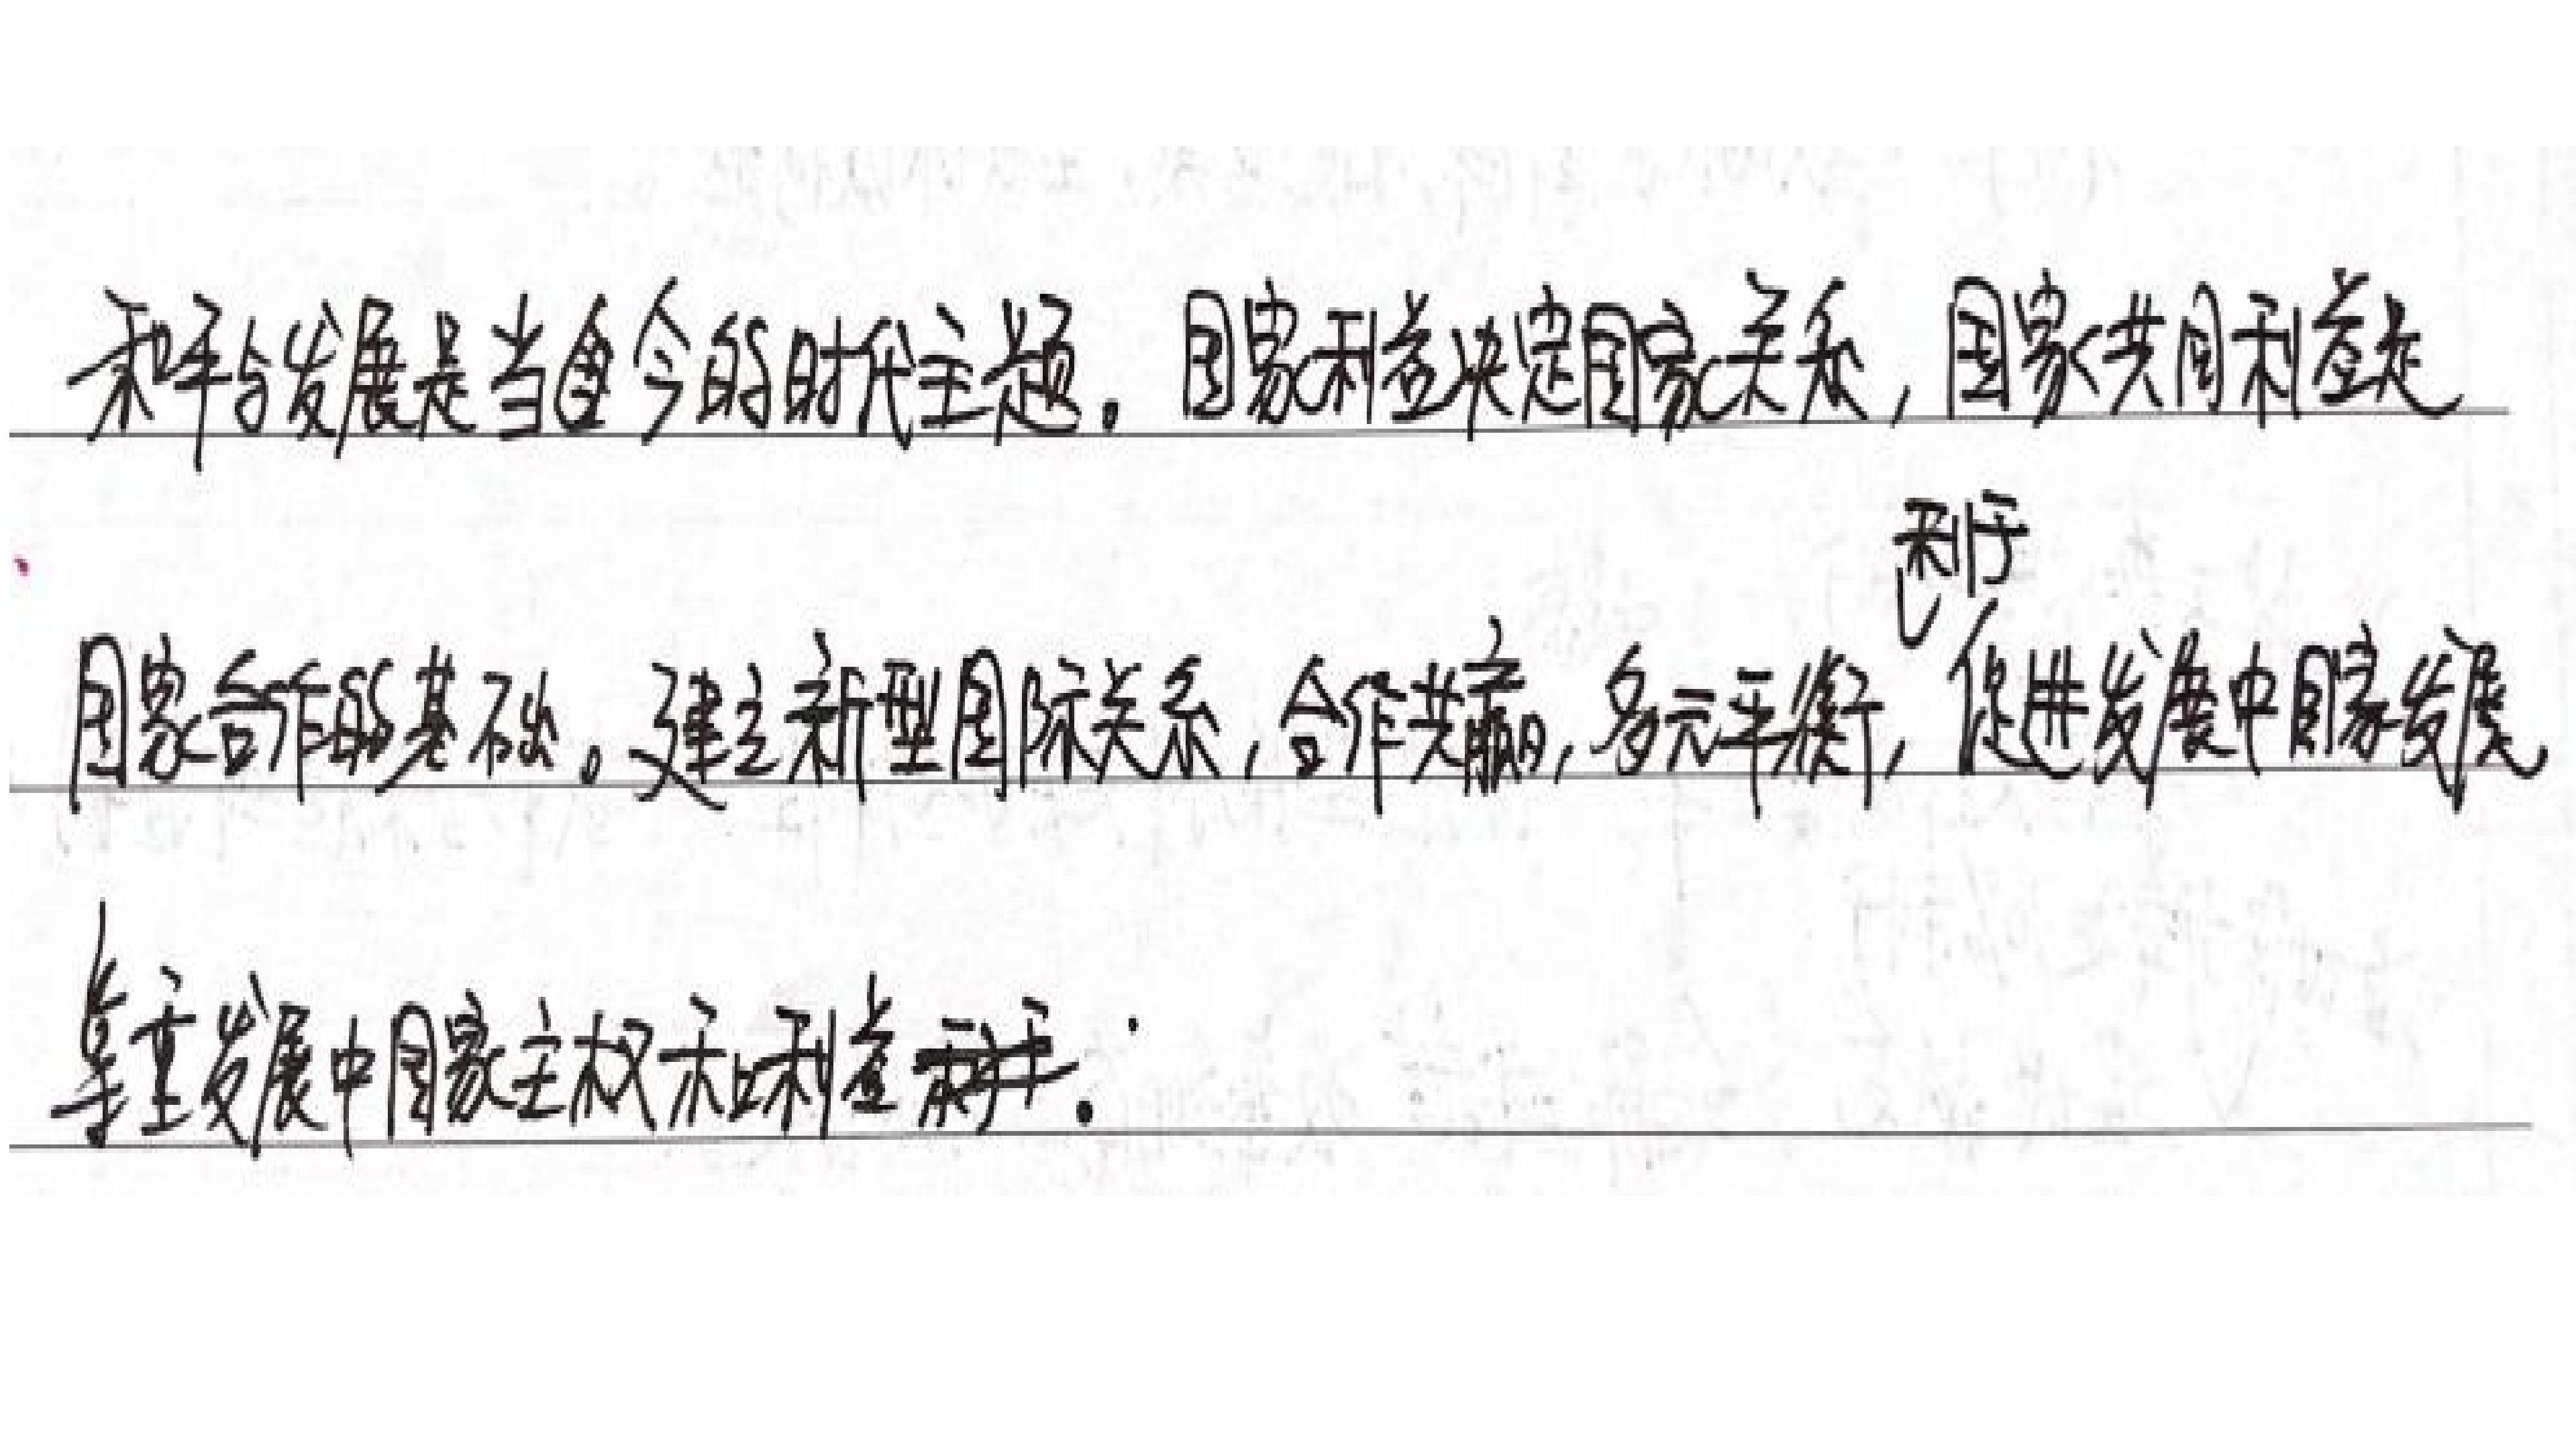 和平与发展是当今的时代主题。国家利益决定国家关系，国家共同利益是
利于
国家合作的基础。建立新型国际关系，合作共赢，多元平衡，促进发展中国家发展
尊重发展中国家主权和利益。